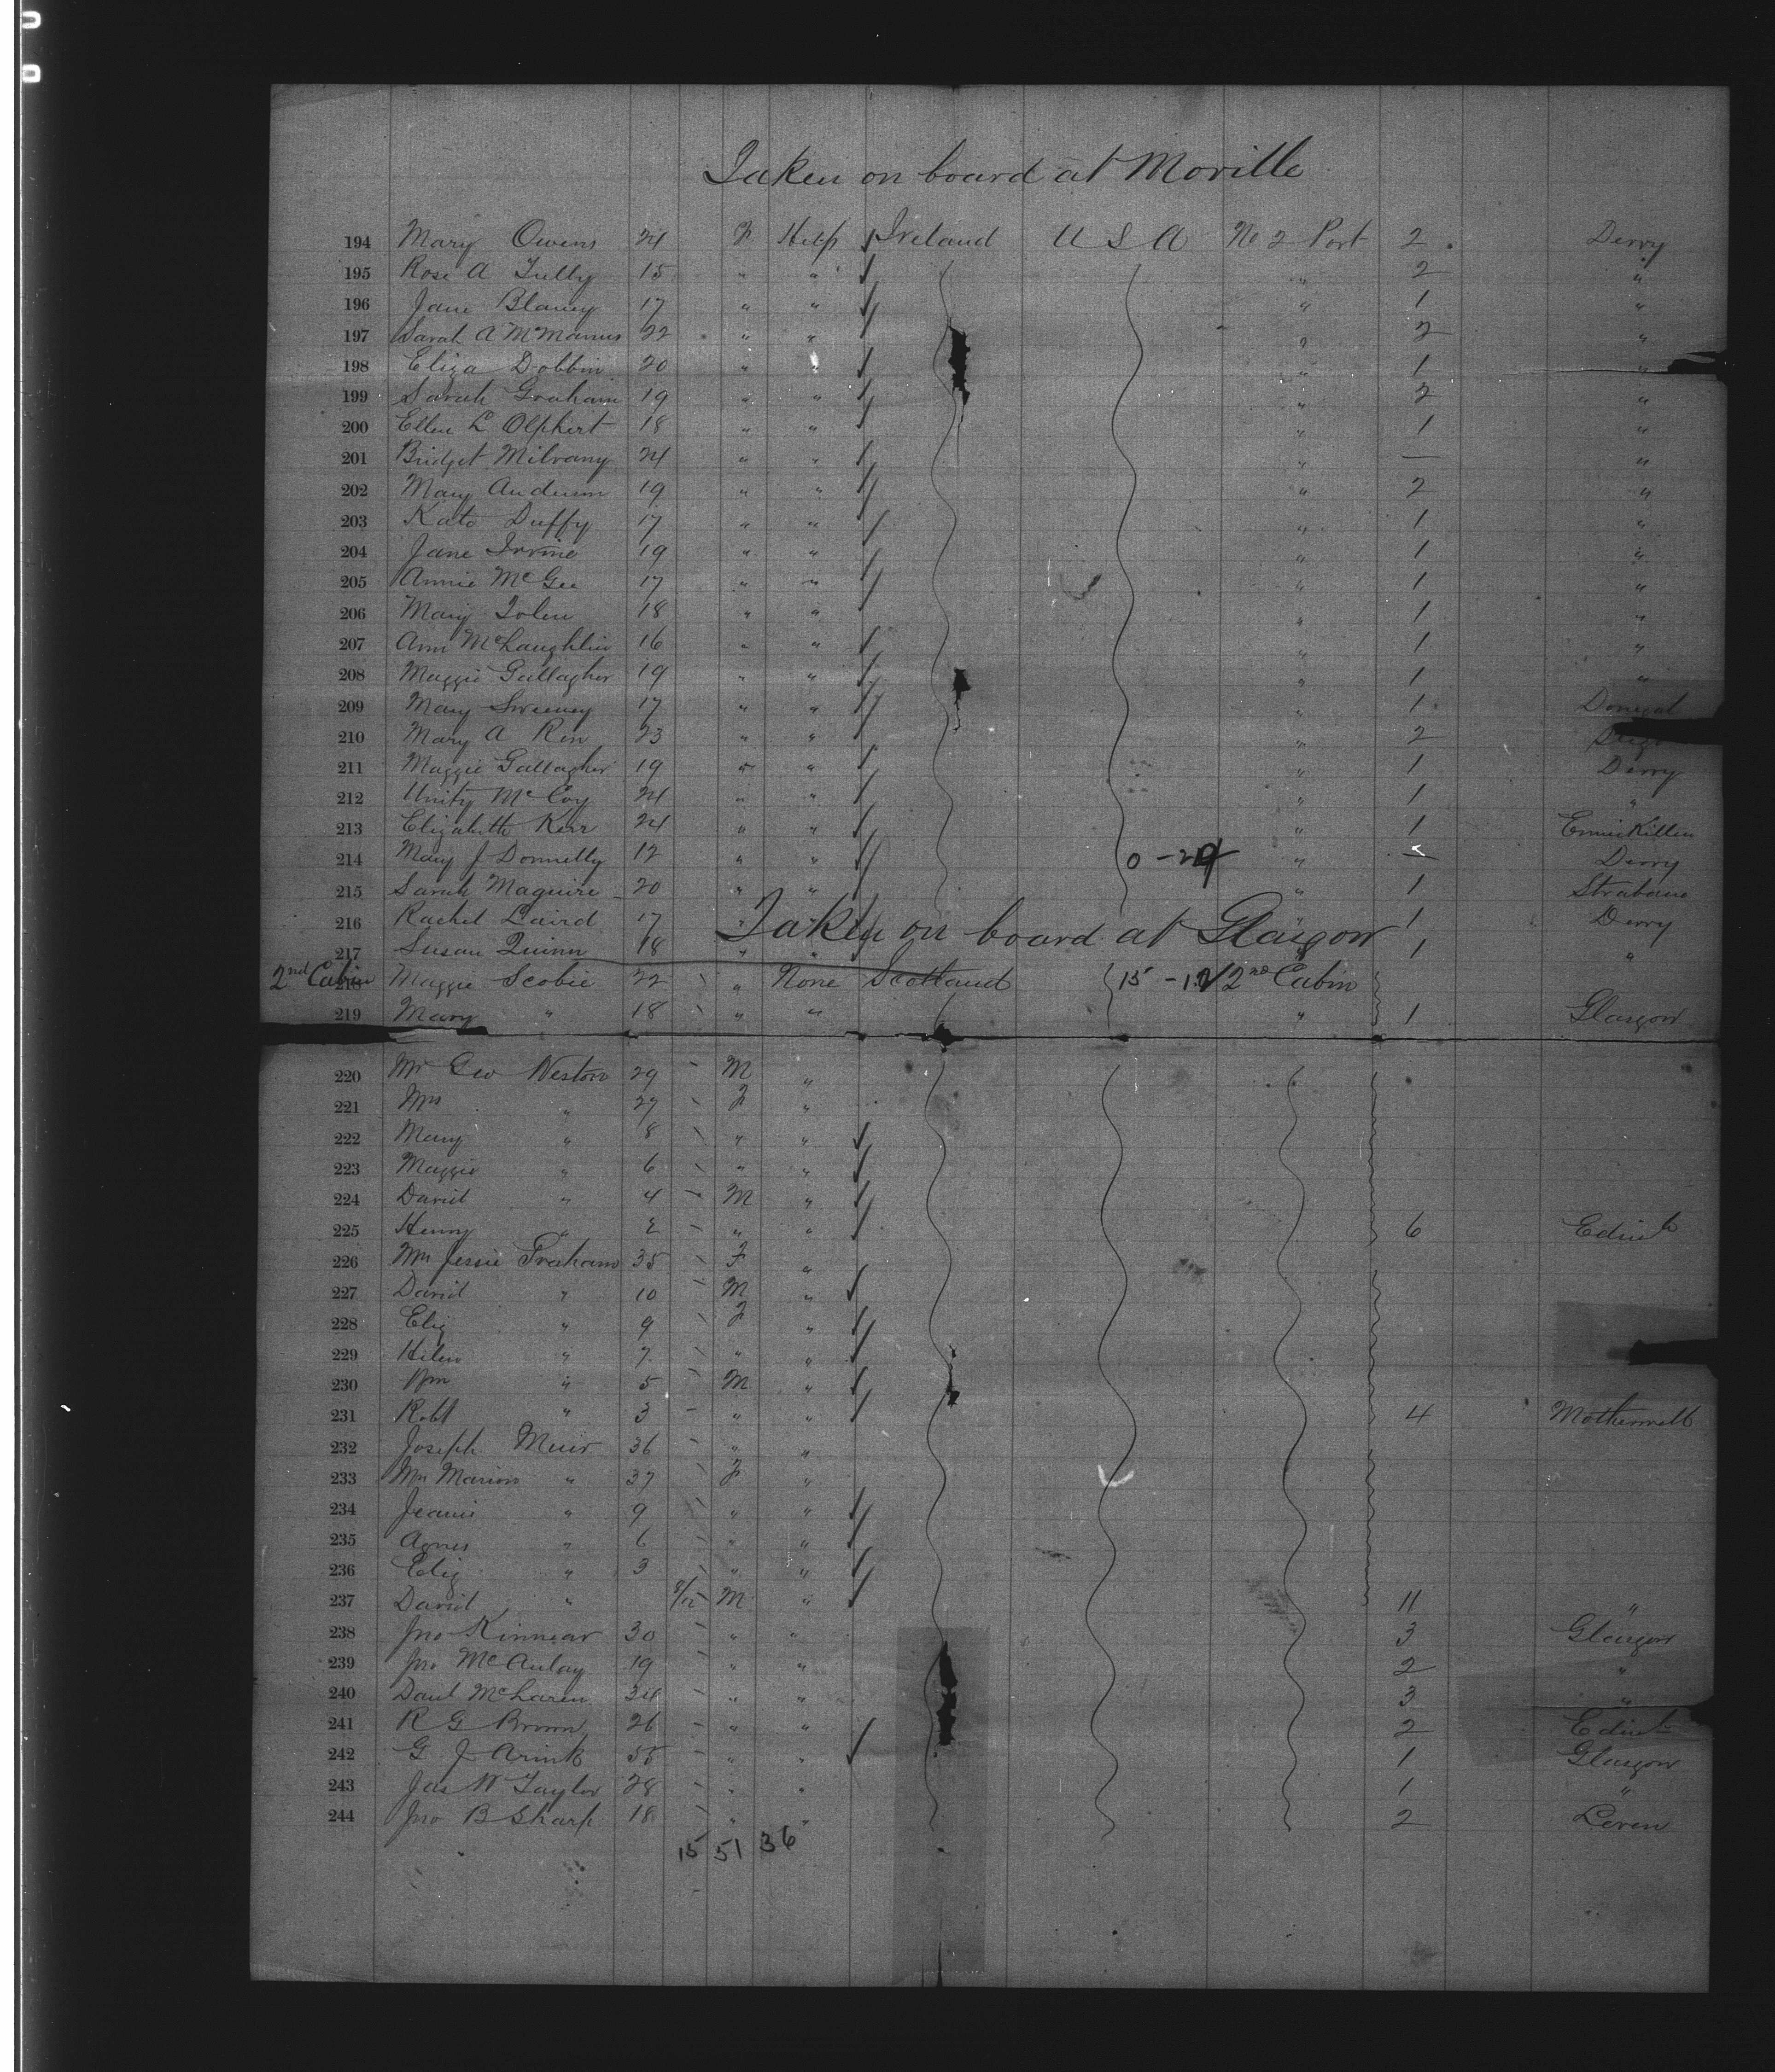 Taken on board at Moville
194 Mary Owens 24 F Help Ireland U S A No 2 Port 2 Derry
195 Rose A Tully 15 " " " 2 "
196 Jane Blaney 17 " " " 1 "
197 Sarah A McManus 22 " " " 2 "
198 Eliza Dobbin 20 " " " 1 "
199 Sarah Graham 19 " " " 2 "
200 Ellen L Olphert 18 " " " 1 "
201 Bridget 24 " " " — "
202 Mary Anderson 19 " " " 2 "
203 Kate Duffy 17 " " " 1 "
204 Jane Irvine 19 " " " 1 "
205 Annie McGee 17 " " " 1 "
206 Mary Tolen 18 " " " 1 "
207 Ann McLaughlin 16 " " " 1 "
208 Maggie Gallagher 19 " " " 1 "
209 Mary Sweeney 17 " " " 1 Donegal
210 Mary A 23 " " " 2
211 Maggie Gallagher 19 " " " 1 Derry
212 Unity McCoy 24 " " " 1 "
213 Elizabeth Kerr 24 " " " 1 Enniskillen
214 Mary J Donnelly 12 " " 0 - 24 " — Derry
215 Sarah Maguire 20 " " " 1 Strabane
216 Rachel Laird 17 " " " 1 Derry
217 Susan Quinn 18 " " " 1 "
Taken on board at Glasgow
2nd Cabin 218 Maggie Scobie 22 " None Scotland 15 - 12 2nd Cabin
219 Mary " 18 " " " 1 Glasgow
220 Mr Geo Weston 29 M "
221 Mrs " 27 F "
222 Mary " 8 " "
223 Maggie " 6 " "
224 David " 4 M "
225 Henry " 2 " " 6 Edinb
226 Mrs Jessie Graham 35 F "
227 David " 10 M "
228 Eliz " 9 F "
229 Helen " 7 " "
230 Wm " 5 M "
231 Robt " 3 " " 4 Motherwell
232 Joseph Muir 36 " "
233 Mrs Marion " 37 F "
234 Jeanie " 9 " "
235 Agnes " 6 " "
236 Eliz " 3 " "
237 David " M " 11 "
238 Jno Kinnear 30 " " 3 Glasgow
239 Jno McAulay 19 " " 2 "
240 Danl McLaren 34 " " 3 "
241 R G Brown 26 " " 2 Edinb
242 G J 55 " " 1 Glasgow
243 Jas W Taylor 28 " " 1 "
244 Jno B Sharp 18 " " 2 Leven
15 51 36